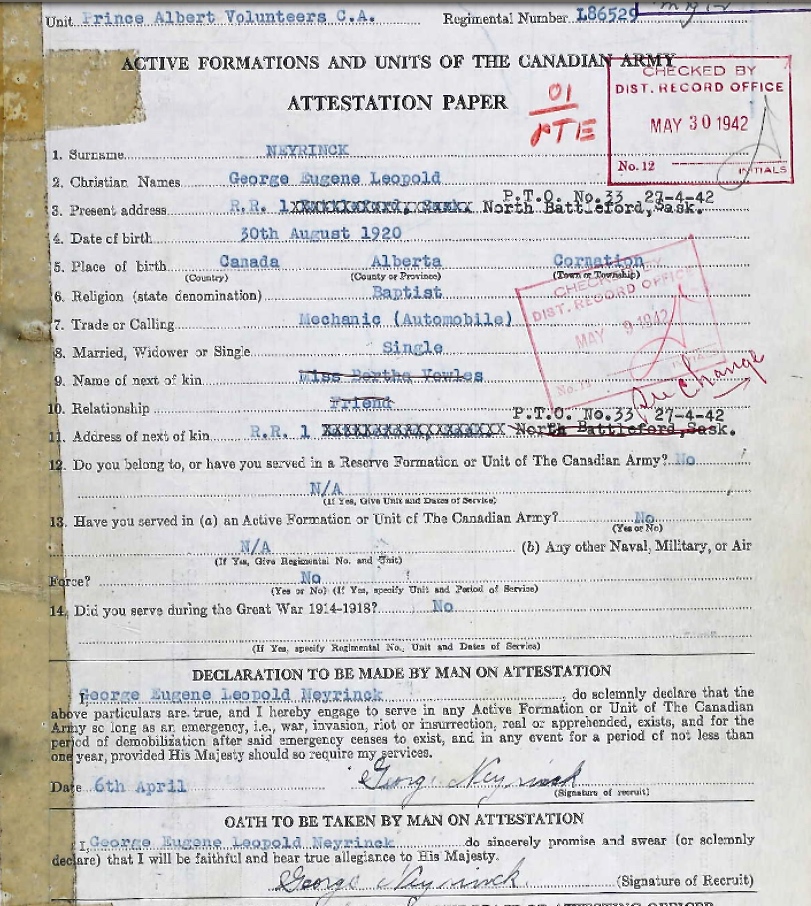 Unit Prince Albert Volunteers C.A. Regimental Number L86529
ACTIVE FORMATIONS AND UNITS OF THE CANADIAN ARMY
ATTESTATION PAPER
01
PTE
CHECKED BY
DIST. RECORD OFFICE
MAY 30 1942
No. 12 INITIALS
1. Surname NEYRINCK
2. Christian Names George Eugene Leopold
P.T.O. No.33 27-4-42
3. Present address R.R. 1 North Battleford, Sask.
4. Date of birth 30th August 1920
5. Place of birth Canada Alberta Cornation
(Country) (County or Province) (Town or Township)
6. Religion (state denomination) Baptist
7. Trade or Calling Mechanic (Automobile)
CHECKED BY
DIST. RECORD OFFICE
MAY 9 1942
No. 12 INITIALS
8. Married, Widower or Single Single
9. Name of next of kin Miss Bertha Vowles
Change
10. Relationship Friend
P.T.O. No.33 27-4-42
11. Address of next of kin R.R. 1 North Battleford, Sask.
12. Do you belong to, or have you served in a Reserve Formation or Unit of The Canadian Army? No
N/A
(If Yes, Give Unit and Dates of Service)
13. Have you served in (a) an Active Formation or Unit of The Canadian Army? No
(Yes or No)
N/A (b) Any other Naval, Military, or Air
(If Yes, Give Regimental No. and Unit)
Force? No
(Yes or No) (If Yes, specify Unit and Period of Service)
14. Did you serve during the Great War 1914-1918? No
(If Yes, specify Regimental No., Unit and Dates of Service)
DECLARATION TO BE MADE BY MAN ON ATTESTATION
I, George Eugene Leopold Neyrinck, do solemnly declare that the
above particulars are true, and I hereby engage to serve in any Active Formation or Unit of The Canadian
Army so long as an emergency, i.e., war, invasion, riot or insurrection, real or apprehended, exists, and for the
period of demobilization after said emergency ceases to exist, and in any event for a period of not less than
one year, provided His Majesty should so require my services.
Date 6th April George Neyrinck
(Signature of recruit)
OATH TO BE TAKEN BY MAN ON ATTESTATION
I, George Eugene Leopold Neyrinck do sincerely promise and swear (or solemnly
declare) that I will be faithful and bear true allegiance to His Majesty.
George Neyrinck (Signature of Recruit)